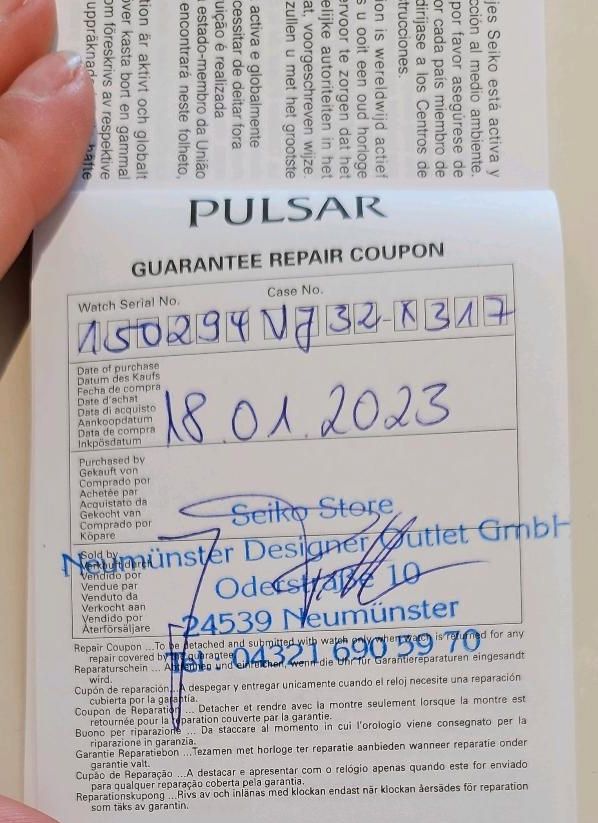 jes Seiko está activa y
cción al medio ambiente.
por favor asegúrese de
or cada país miembro de
diríjase a los Centros de
strucciones.
ion is wereldwijd actief
s u ooit een oud horloge
ervoor te zorgen dat het
elijke autoriteiten in het
at, voorgeschreven wijze.
zullen u met het grootste
activa e globalmente
cessitar de deitar fora
uição é realizada
estado-membro da União
encontrará neste folheto,
tion är aktivt och globalt
över kasta bort en gammal
om föreskrivs av respektive
PULSAR
GUARANTEE REPAIR COUPON
Watch Serial No. Case No.
150294 VJ32-X317
Date of purchase
Datum des Kaufs
Fecha de compra
Date d'achat
Data di acquisto
Aankoopdatum
Data de compra
Inkpösdatum
18.01.2023
Purchased by
Gekauft von
Comprado por
Achetée par
Acquistato da
Gekocht van
Comprado por
Köpare
Seiko Store
Neumünster Designer Outlet GmbH
Oderstraße 10
24539 Neumünster
Tel.: 04321 690 59 70
Sold by
Verkauft durch
Vendido por
Vendue par
Venduto da
Verkocht aan
Vendido por
Återförsäljare
Repair Coupon ...To be detached and submitted with watch only when watch is returned for any
repair covered by the guarantee.
Reparaturschein ... Abtrennen und einreichen, wenn die Uhr für Garantiereparaturen eingesandt
wird.
Cupón de reparación...A despegar y entregar unicamente cuando el reloj necesite una reparación
cubierta por la garantía.
Coupon de Reparation ... Detacher et rendre avec la montre seulement lorsque la montre est
retournée pour la reparation couverte par la garantie.
Buono per riparazione ... Da staccare al momento in cui l'orologio viene consegnato per la
riparazione in garanzia.
Garantie Reparatiebon ...Tezamen met horloge ter reparatie aanbieden wanneer reparatie onder
garantie valt.
Cupão de Reparação ...A destacar e apresentar com o relógio apenas quando este for enviado
para qualquer reparação coberta pela garantia.
Reparationskupong ...Rivs av och inlänas med klockan endast när klockan åersädes för reparation
som täks av garantin.